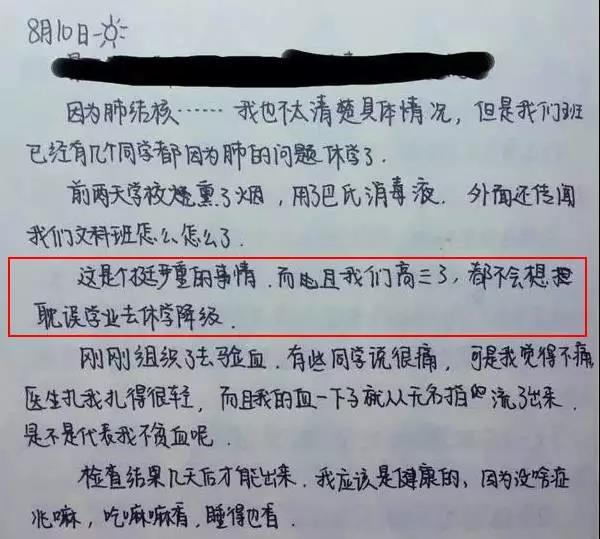 8月10日
因为肺结核……我也不太清楚具体情况，但是我们班
已经有几个同学都因为肺的问题休学了.
前两天学校熏了烟，用了巴氏消毒液. 外面还传闻
我们文科班怎么怎么了.
这是个挺严重的事情.而且我们高三了，都不会想
耽误学业去休学降级.
刚刚组织了去验血. 有些同学说很痛，可是我觉得不痛
医生扎我扎得很轻，而且我的血一下子就从无名指 流了出来.
是不是代表我不贫血呢.
检查结果几天后才能出来.我应该是健康的，因为没啥症
兆嘛，吃嘛嘛香，睡得也香.